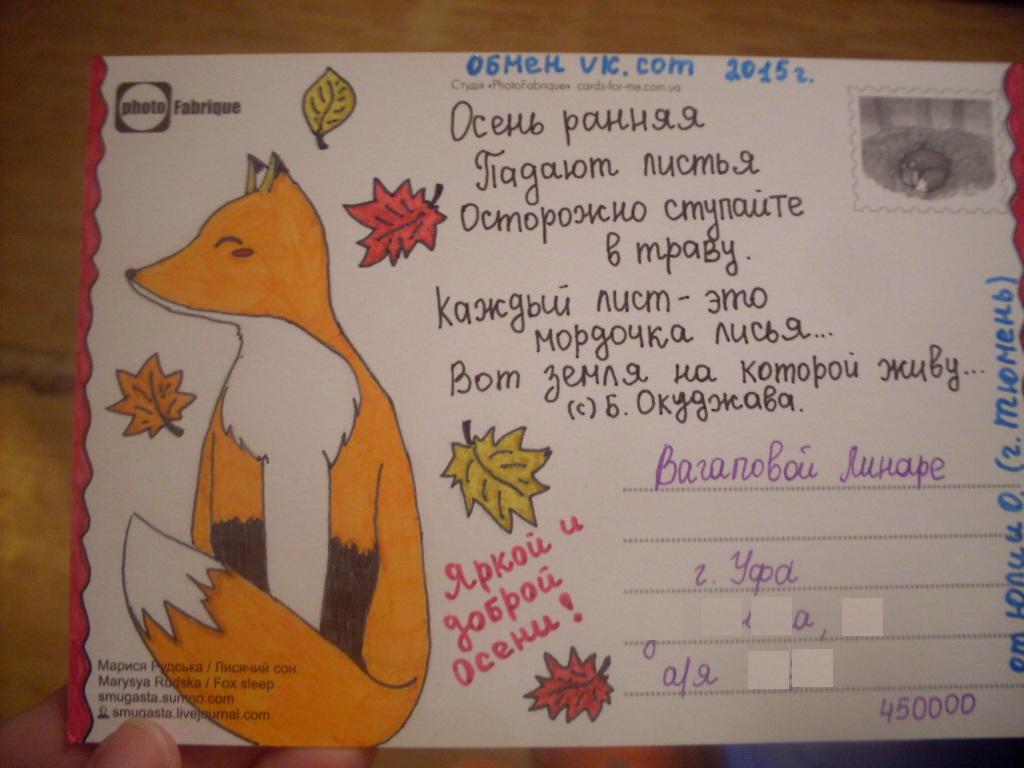 photo Fabrique
обмен vk.com 2015г.
Студія «PhotoFabrique» cards-for-me.com.ua
Осень ранняя
Падают листья
Осторожно ступайте
в траву.
Каждый лист - это
мордочка лисья...
Вот земля на которой живу...
(с) Б. Окуджава.
Вагаповой Линаре
г. Уфа
а,
а/я
450000
Яркой и
доброй
осени!
от Юлии О. (г. Тюмень)
Марися Рудська / Лисячий сон
Marysya Rudska / Fox sleep
smugasta.sumno.com
smugasta.livejournal.com